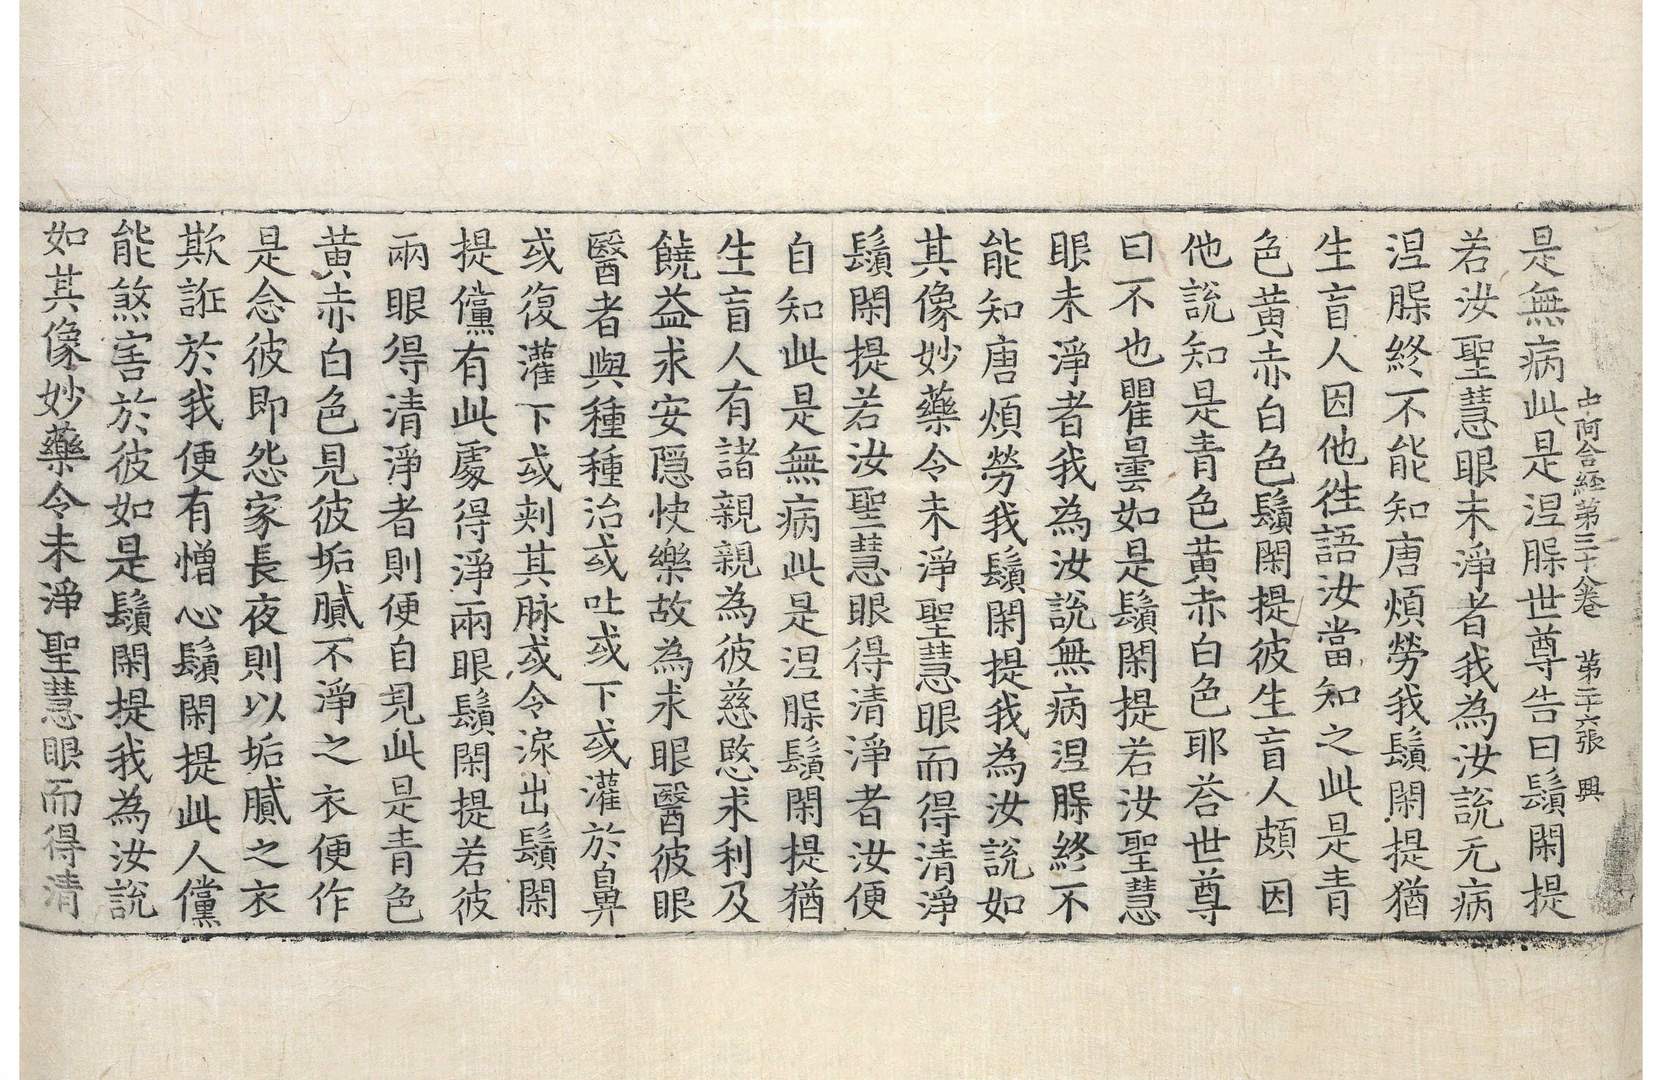 中阿含経第三十八卷 第二十六張 興
是無病此是涅槃世尊告曰鬚閑提
若汝聖慧眼未淨者我為汝說无病
涅槃終不能知唐煩勞我鬚閑提猶
生盲人因他往語汝當知之此是青
色黃赤白色鬚閑提彼生盲人頗因
他說知是青色黃赤白色耶荅世尊
曰不也瞿曇如是鬚閑提若汝聖慧
眼未淨者我為汝說無病涅槃終不
能知唐煩勞我鬚閑提我為汝說如
其像妙藥令未淨聖慧眼而得清淨
鬚閑提若汝聖慧眼得清淨者汝便
自知此是無病此是涅槃鬚閑提猶
生盲人有諸親親為彼慈愍求利及
饒益求安隱快樂故為求眼醫彼眼
醫者與種種治或吐或下或灌於鼻
或復灌下或刺其脉或令淚出鬚閑
提儻有此處得淨兩眼鬚閑提若彼
兩眼得清淨者則便自見此是青色
黃赤白色見彼垢膩不淨之衣便作
是念彼即怨家長夜則以垢膩之衣
欺誑於我便有憎心鬚閑提此人儻
能煞害於彼如是鬚閑提我為汝說
如其像妙藥令未淨聖慧眼而得清